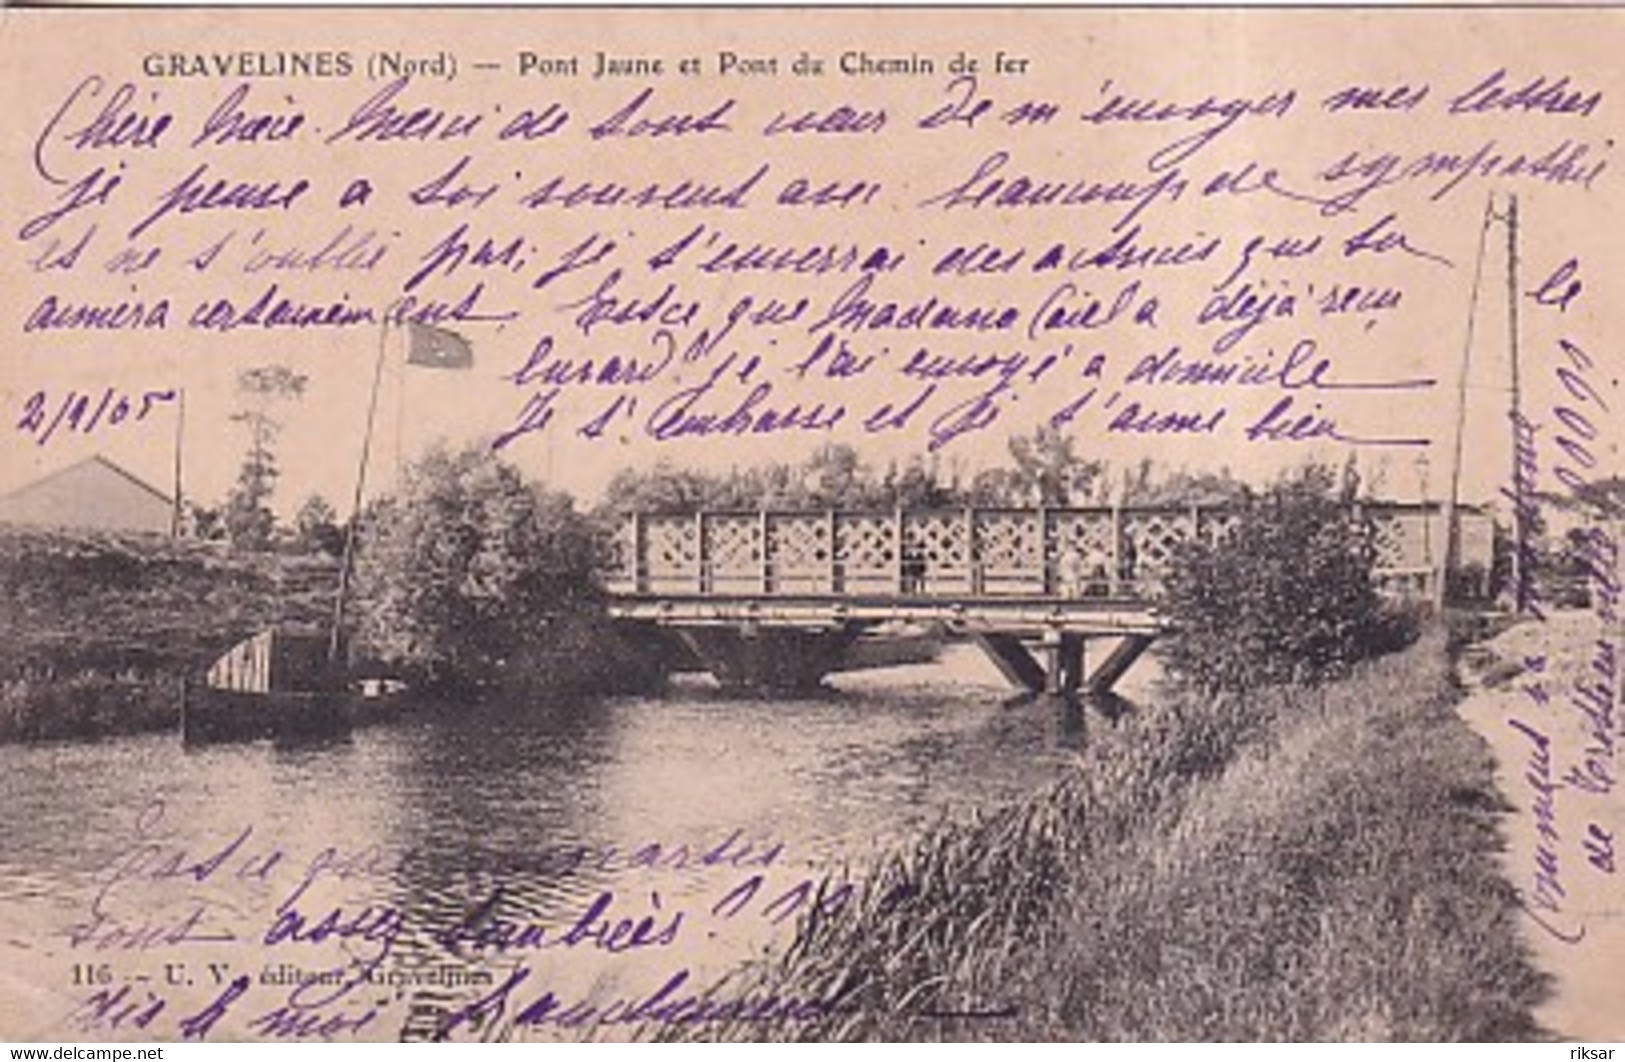 GRAVELINES (Nord) — Pont Jaune et Pont du Chemin de fer
Chère Merci de tout cœur De m'envoyer mes lettres
je pense a toi souvent avec beaucoup de sympathie
et ne t'oublie pas, je t'enverrai des que tu
aimera certainement. Estce que Madame Ciel a déjà reçu
? je l'ai envoyé a domicile
2/9/05
Je t'embrasse et je t'aime bien
le
Comment va
de
Est ce que cartes
sont assez timbrées ?
116 — U. V. éditeur, Gravelines
Dis le moi franchement
riksar
https://www.delcampe.net